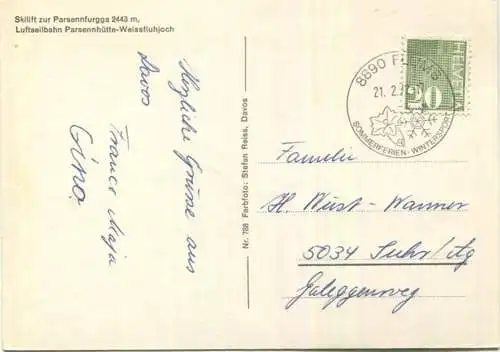 Skilift zur Parsennfurgga 2443 m,
Luftseilbahn Parsennhütte-Weissfluhjoch
Herzliche Grüsse aus
Davos
Franco Maja
Gino.
Nr. 788 Farbfoto: Stefan Reiss, Davos
8890 FLUMS
21. 2. 7
SOMMERFERIEN - WINTERSPORT
HELVETIA
20
Familie
H. Wüst-Wanner
5034 Suhr/Ag
Galeggenweg